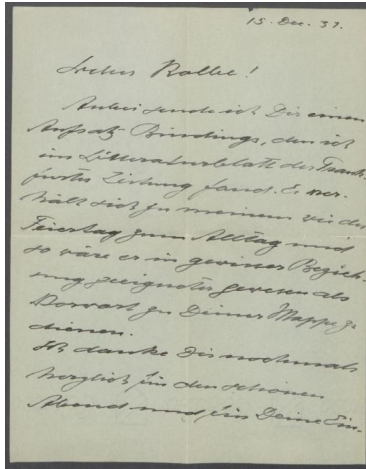 15. Dec. 37.
Lieber Kolbe!
Anbei sende ich Dir einen
Aufsatz Bindings, den ich
im Litteraturblatt der Frank-
furter Zeitung fand. Er ver-
hält sich zu meinem wie der
Feiertag zum Alltag und
so wäre er in gewisser Bezieh-
ung geeigneter gewesen als
Vorwort zu Deiner Mappe zu
dienen.
Ich danke Dir nochmals
herzlich für den schönen
Abend und für Deine Ein-